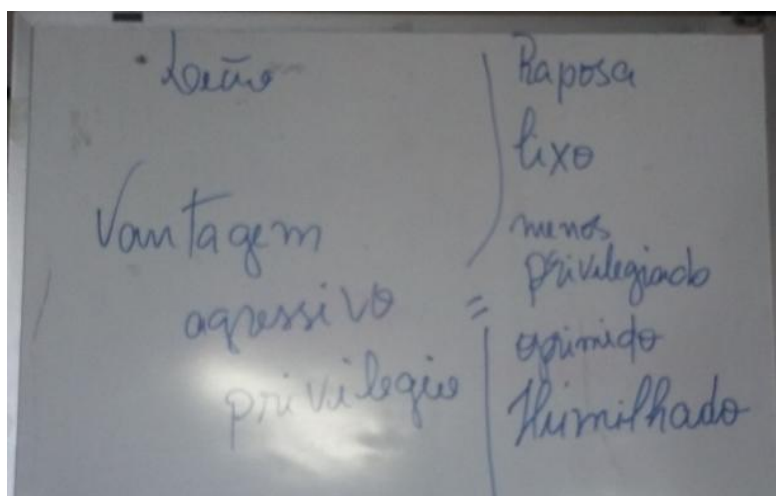 Leão
Vantagem
agressivo =
privilegio
Raposa
lixo
menos
privilegiado
oprimido
Humilhado